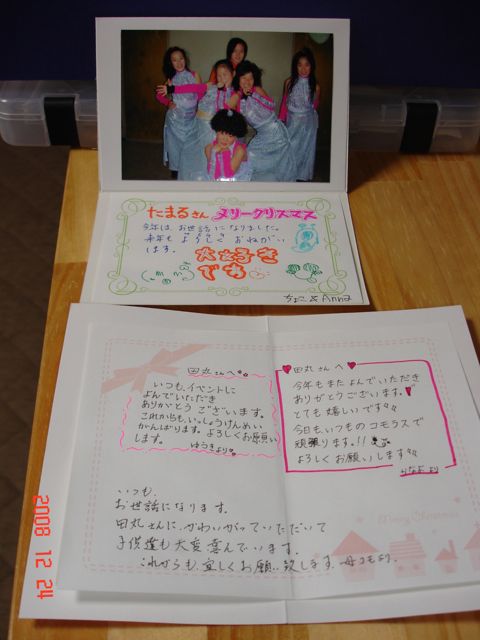 たまるさん メリークリスマス
今年は お世話になりました。
来年も よろしく おねがい
します。
大好き
です
ちょこ & Anna
田丸さんへ
いつも、イベントに
よんでいただき
ありがとう ございます。
これからも、いっしょうけんめい
がんばります。よろしくお願い
します。
ゆうきより
田丸さん へ
今年もまた よんでいただき
ありがとうございます。
とても 嬉しいです
今日も、いつもの コモラス で
頑張ります。!!
よろしく お願いします
かなよ より
いつも、
お世話になります。
田丸さんに、かわいがって いただいて
子供達も 大変 喜んでいます。
これからも、宜しくお願い致します。母コモより。
Merry Christmas
2008 12 24